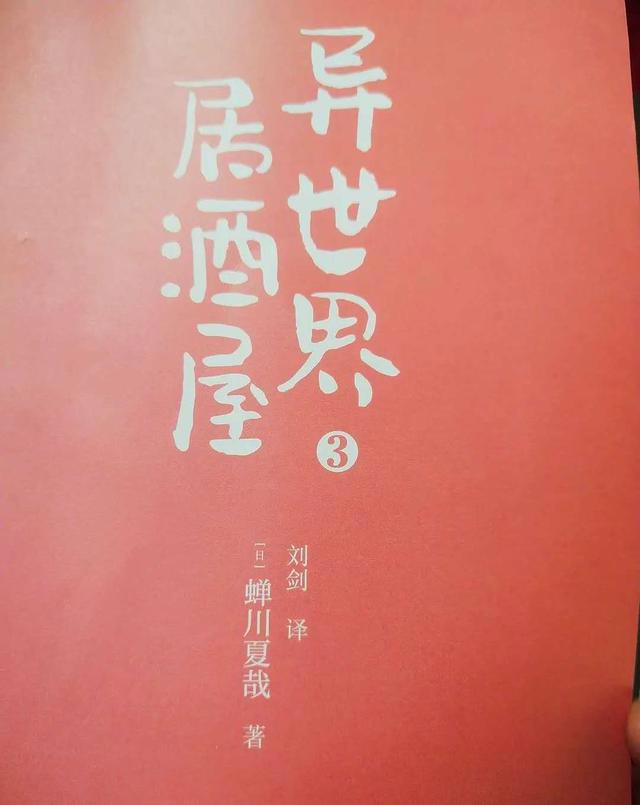 异世界
居酒屋
3
刘剑 译
[日] 蝉川夏哉 著